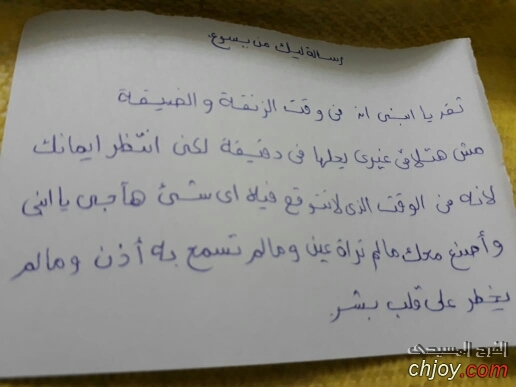 رسالة ليك من يسوع
ثق يا ابنى انه فى وقت الزنقة والضيقة
مش هتلاقى غيرى يحلها فى دقيقة لكن انتظر ايمانك
لانه من الوقت الذى لاتتوقع فيه اى شئ هآجى يا ابنى
وأصنع معك مالم تراة عين ومالم تسمع به أذن ومالم
يخطر على قلب بشر.
الفرح المسيحى
chjoy.com